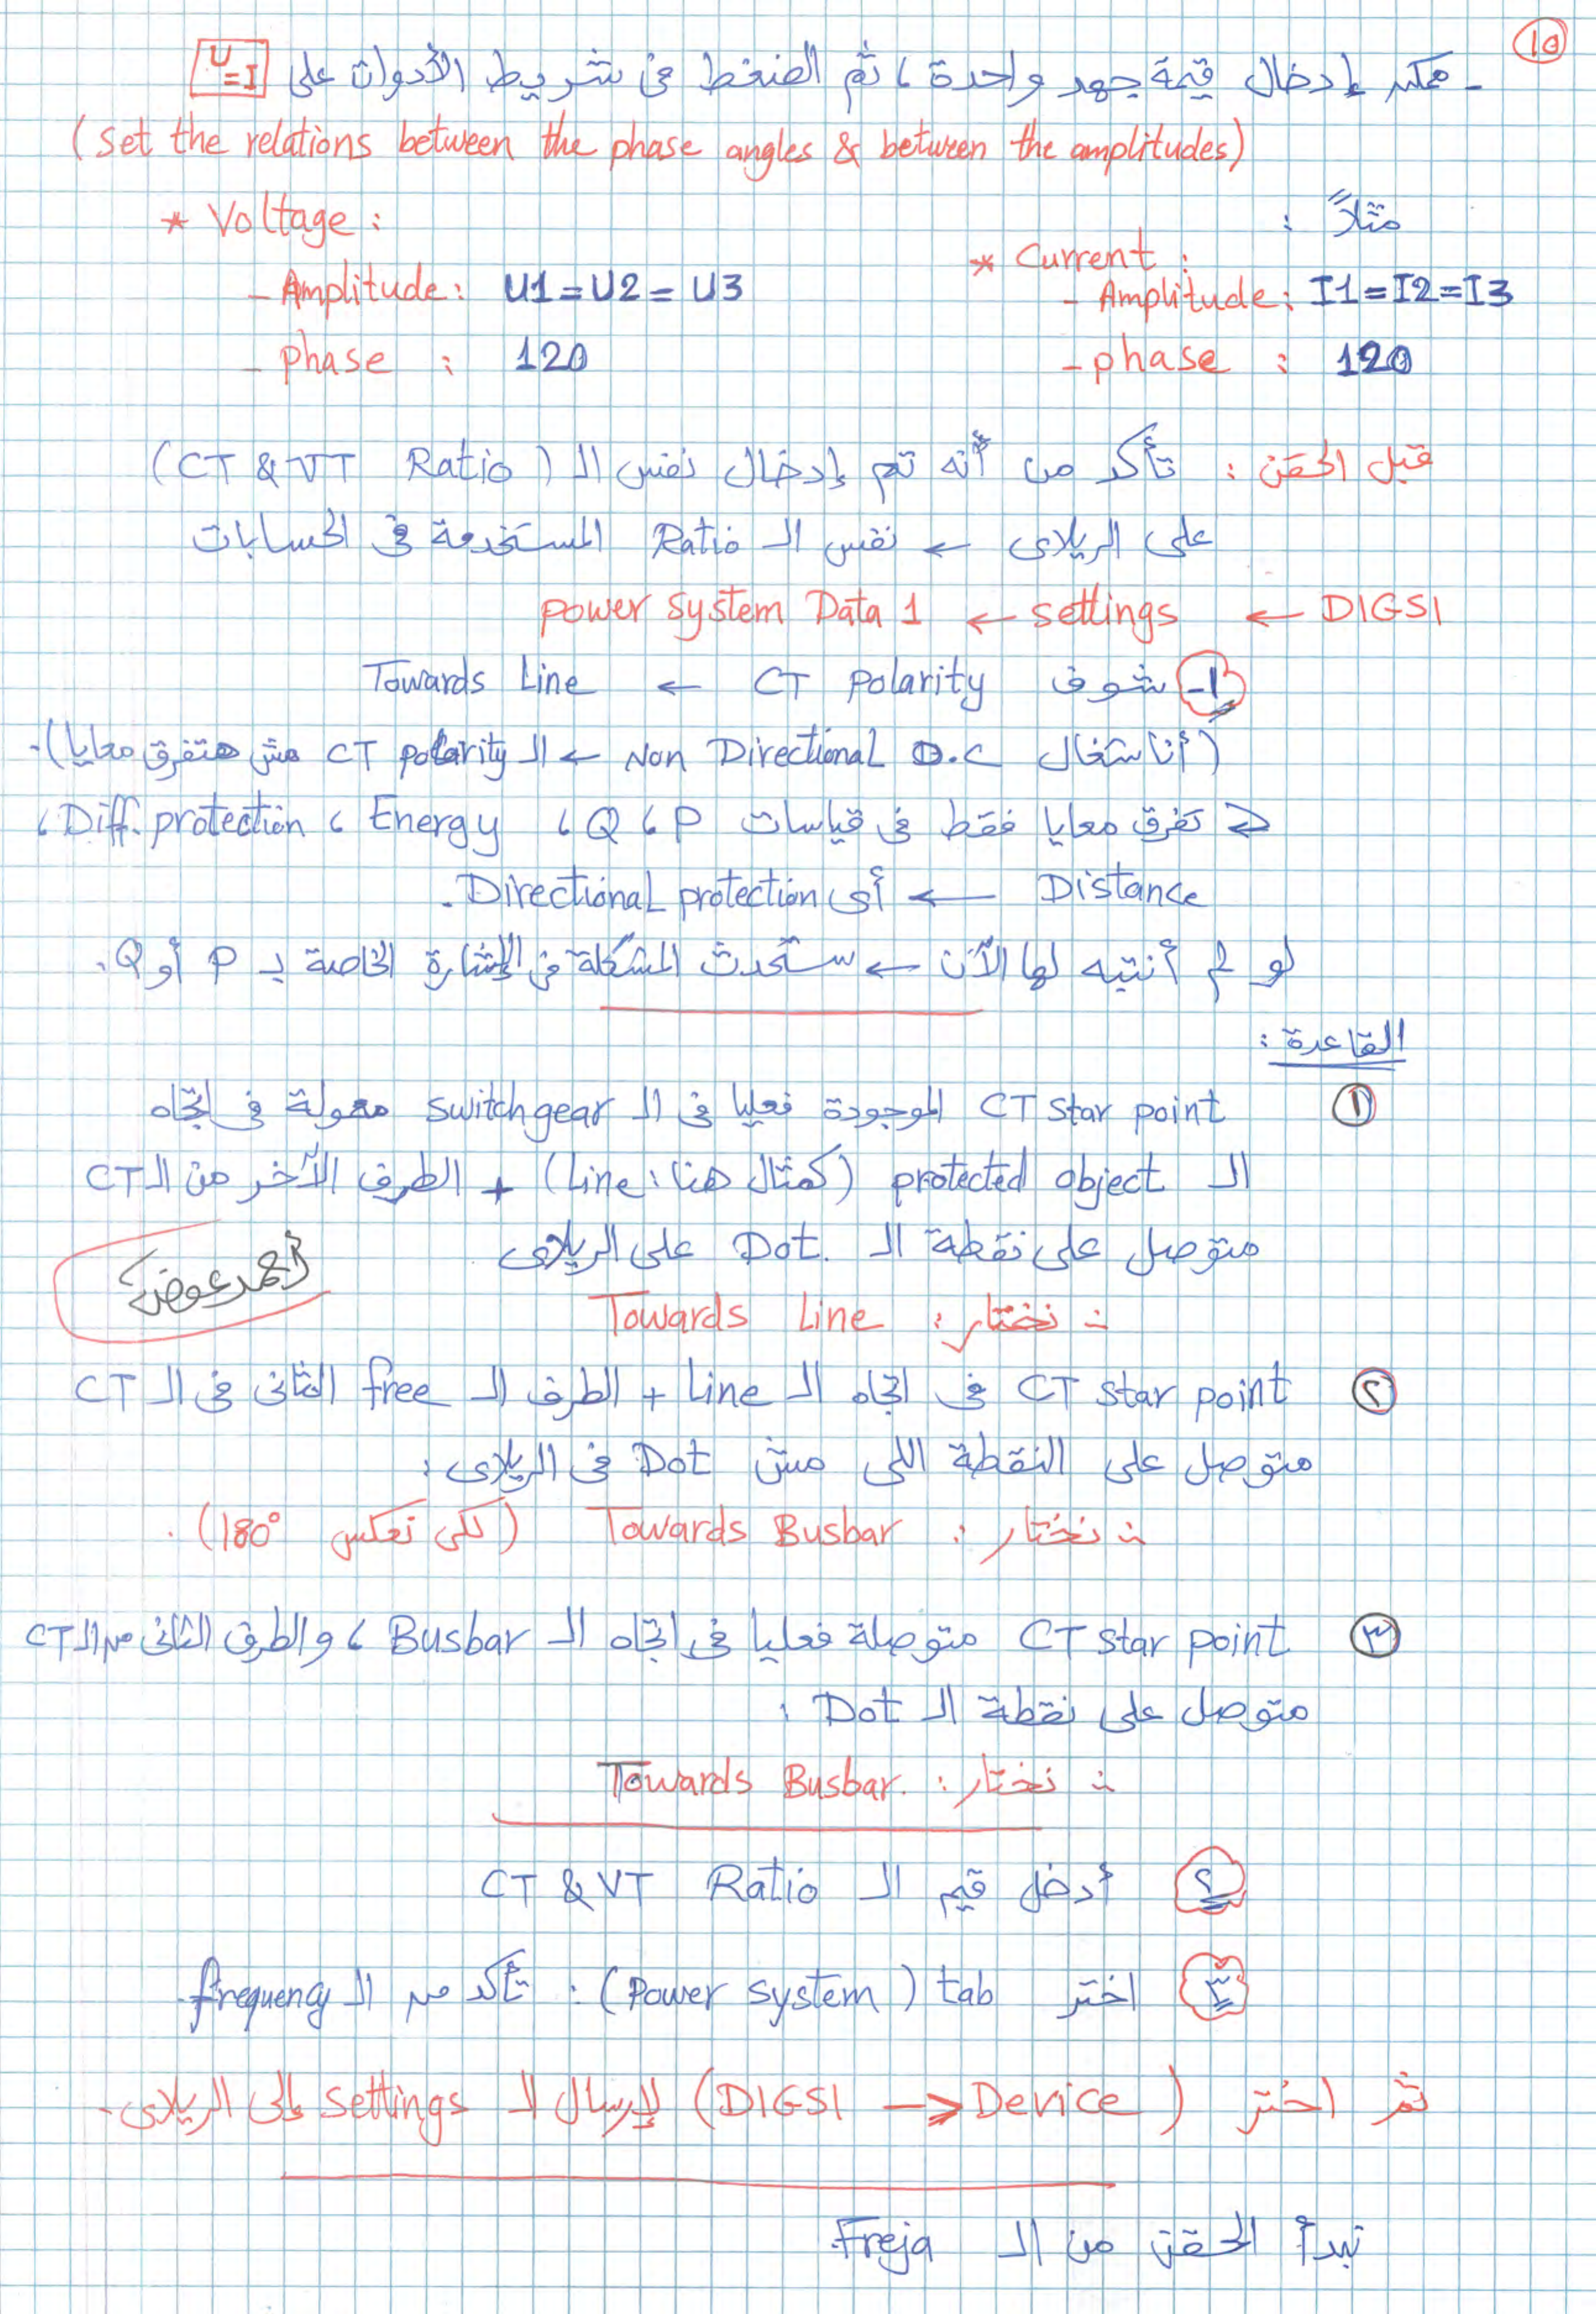 10
- ممكن إدخال قيمة جهد واحدة ، ثم الضغط فى شريط الأدوات على U=I
(set the relations between the phase angles & between the amplitudes)
مثلاً :
* Voltage :
- Amplitude : U1 = U2 = U3
- phase : 120
* Current :
- Amplitude : I1 = I2 = I3
- phase : 120
قبل الحقن : تأكد من أنه تم إدخال نفس الـ (CT & VT Ratio)
على الريلاى ← نفس الـ Ratio المستخدمة فى الحسابات
DIGSI ← settings ← power system Data 1
1- شوف CT polarity ← Towards Line
(أنا شغال Non Directional O.C ← الـ CT polarity مش هتفرق معايا).
تفرق معايا فقط فى قياسات P ، Q ، Energy ، Diff. protection ،
Distance ← أى Directional protection.
لو لم أنتبه لها الآن ← ستحدث المشكلة فى الإشارة الخاصة بـ P أو Q.
القاعدة :
① CT star point الموجودة فعليا فى الـ switchgear معمولة فى اتجاه
الـ protected object (كمثال هنا : Line) + الطرف الآخر من الـ CT
متوصل على نقطة الـ Dot. على الريلاى
∴ نختار : Towards Line
أحمد عوض
② CT star point فى اتجاه الـ Line + الطرف الـ free الثانى فى الـ CT
متوصل على النقطة اللى مش Dot فى الريلاى :
∴ نختار : Towards Busbar (لكى تعكس 180°) .
③ CT star point متوصلة فعليا فى اتجاه الـ Busbar ، والطرف الثانى من الـ CT
متوصل على نقطة الـ Dot :
∴ نختار : Towards Busbar.
٢ أدخل قيم الـ CT & VT Ratio
٣ اختر tab (Power system) : تأكد من الـ frequency.
ثم اختر (DIGSI → Device) لإرسال الـ settings إلى الريلاى.
نبدأ الحقن من الـ Freja.